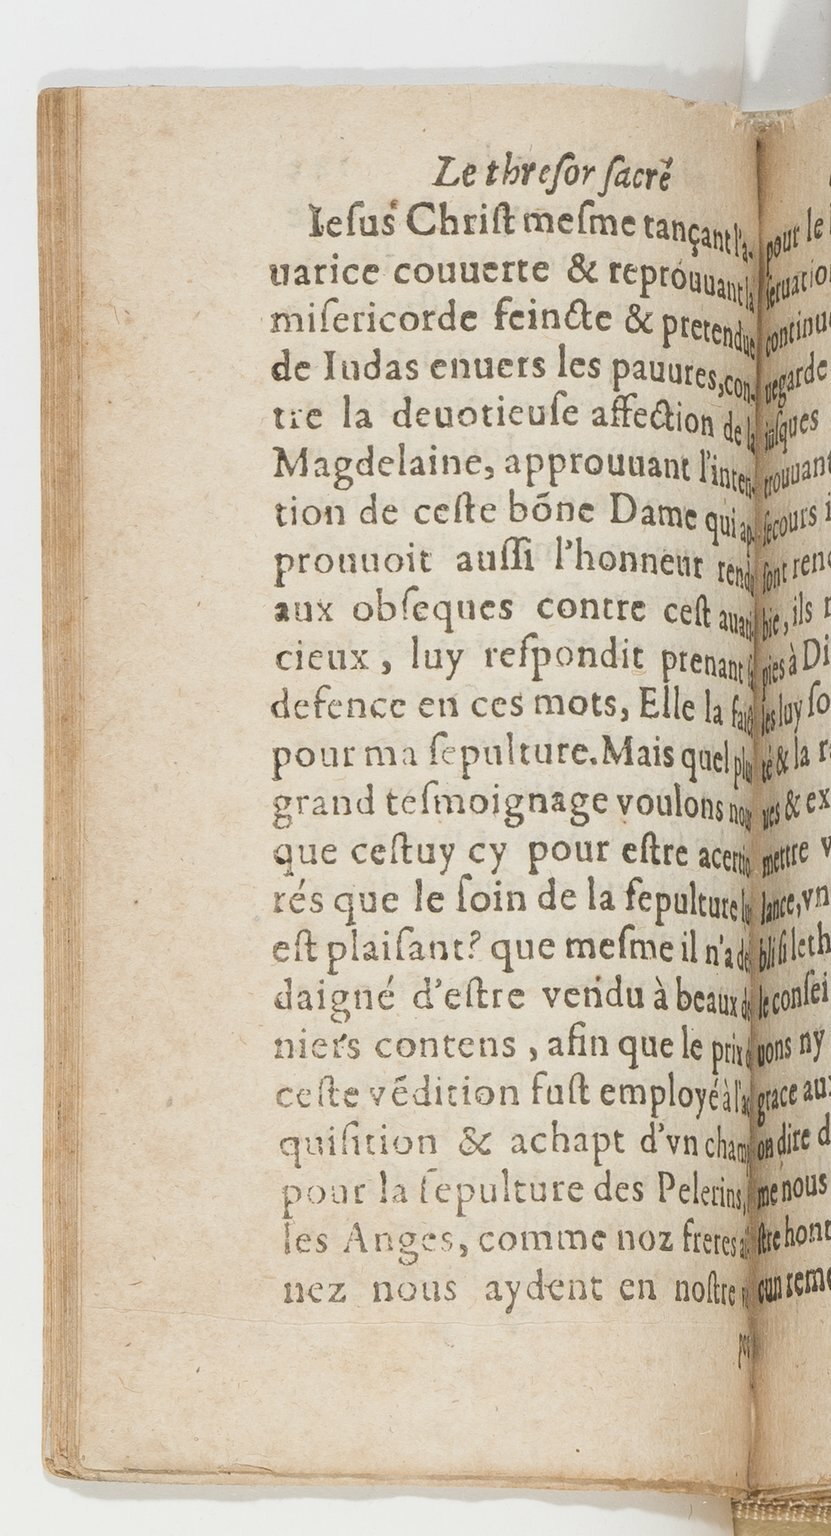 Le thresor sacré
Iesus Christ mesme tançant l'a-
uarice couuerte & reprouuant la
misericorde feincte & pretendue
de Iudas enuers les pauures, con-
tre la deuotieuse affection de la
Magdelaine, approuuant l'inten-
tion de ceste bõne Dame qui ap-
prouuoit aussi l'honneur rendu
aux obseques contre cest auari
cieux, luy respondit prenant
defence en ces mots, Elle la faict
pour ma sepulture. Mais quel plus
grand tesmoignage voulons nous
que cestuy cy pour estre
rés que le soin de la sepulture luy
est plaisant? que mesme il n'a de
daigné d'estre vendu à beaux de
niers contens, afin que le prix
ceste vẽdition fust employé à l'ac
quisition & achapt d'vn champ
pour la sepulture des Pelerins,
les Anges, comme noz freres
nez nous aydent en nostre
pour le
seruatio
continu
regarde
iusques
trouuant
secours
sont ren
bie, ils
pies à Di
les luy so
té & la
ues & ex
mettre v
lance, vn
bli si le th
le consei
uons ny
grace au
on dire d
me nous
stre hont
cun reme